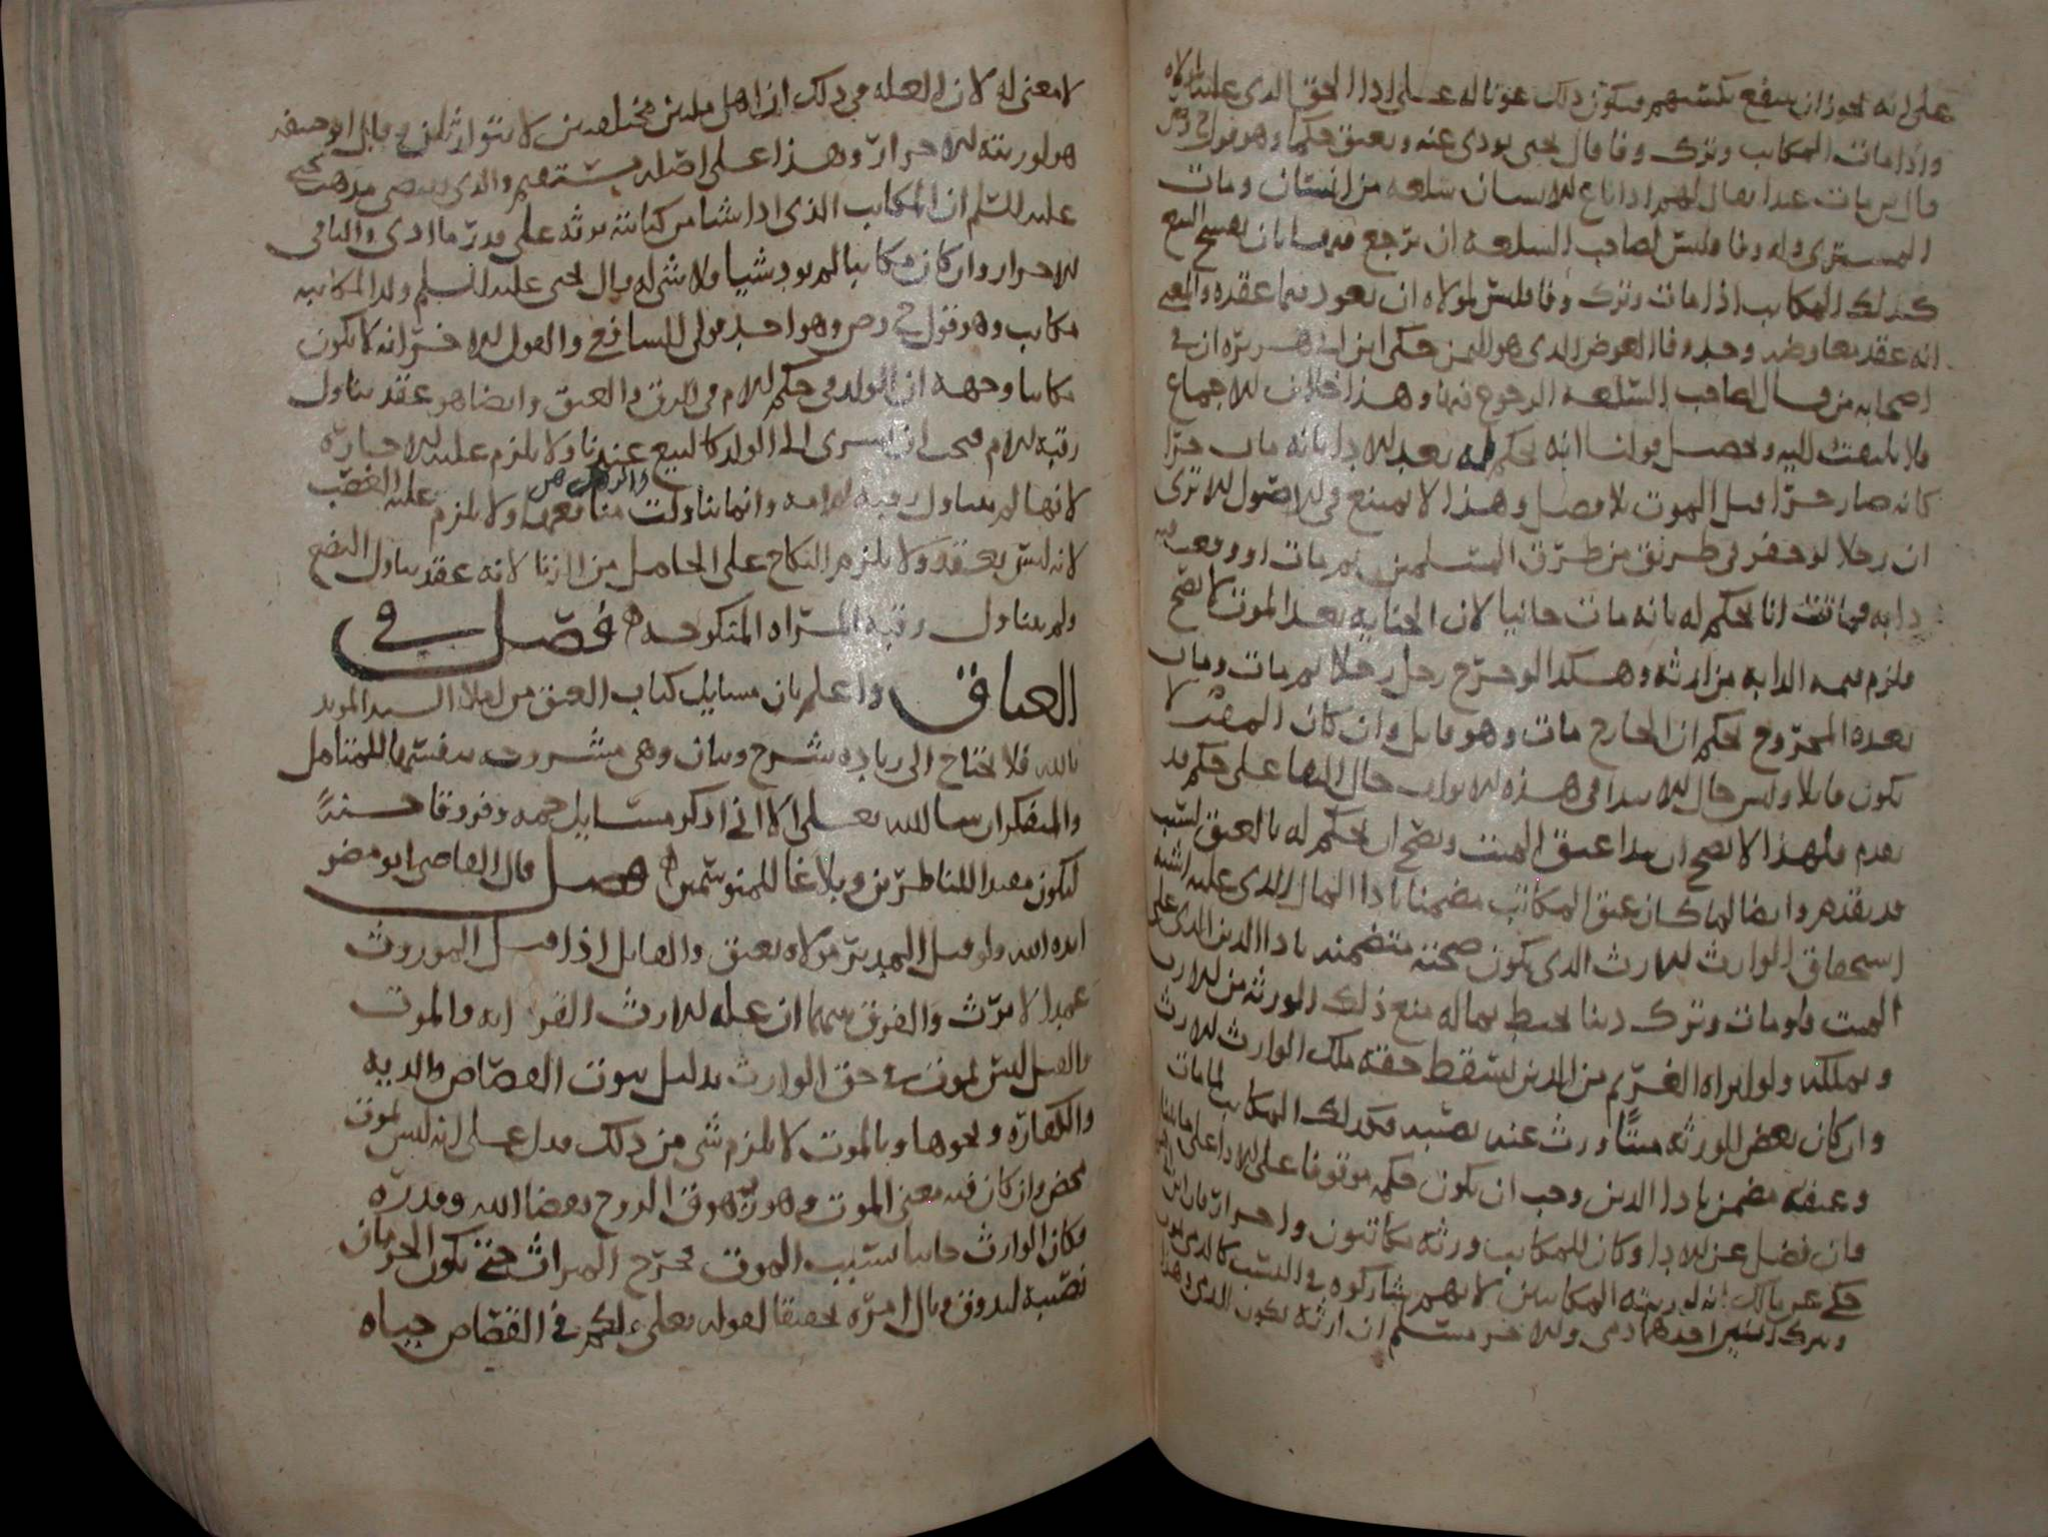 على انه يجوز ان ينفع بكسبهم فيكون ذلك عونا له على اداء الحق الذي عليه
واذا مات المكاتب وترك وفا قال يحيى يودى عنه ويعتق حكما وهو قول ح وص
وقال ش مات عبدا يقال لهم اذا باع الانسان سلعة من انسان ومات
المشترى وله وفا فليس لصاحب السلعة ان يرجع فيها بان يفسخ البيع
كذلك المكاتب اذا مات وترك وفا فليس لمولاه ان يعود فيما عقده والمعنى
انه عقد معاوضه وجد وفا العوض الذي هو الثمن حكى ابن ابى هريره ان في
اصحابه من قال لصاحب السلعة الرجوع فيها وهذا خلاف الاجماع
فلا يلتفت اليه وتحصيل قولنا انه يحكم له بعد الادا بانه مات حرا
كانه صار حرا قبل الموت بلا فصل وهذا لا يمتنع في الاصول الا ترى
ان رجلا لو حفر في طريق من طرق المسلمين ثم مات او وقعت فيه
دابه فماتت انا نحكم له بانه مات جانيا لان الجنايه بعد الموت لا تصح
فلزم قيمه الدابه من ارثه وهكذا لو جرح رجل رجلا ثم مات ومات
بعده المجروح نحكم ان الجارح مات وهو قاتل وان كان الميت لا
يكون قاتلا وليس حال الابتدا في هذه الابواب حال البقا على حكم قد
تقدم فلهذا لا يصح ان يبدا عتق الميت ويصح ان نحكم له بالعتق لسبب
قد تقدم وايضا لما كان عتق المكاتب مضمنا بادا المال الذي عليه اشبه
استحقاق الوارث للارث الذي يكون صحته متضمنه بادا الدين الذي على
الميت فلو مات وترك دينا يحيط بماله منع ذلك الورثه من الارث
وتملكه ولو ابراه الغريم من الدين لسقط حقه ملك الوارث للارث
وان كان بعض الورثه ميتا ورث عنه نصيبه فكذلك المكاتب لما مات
وعتقه مضمن بادا الدين وجب ان يكون حكمه موقوفا على الادا على ما بينا
فان فضل عن الادا وكان للمكاتب ورثه مكاتبون واحرار فان
حكى عن مالك انه لورثته المكاتبين لانهم شاركوه في السبب كالذي يموت
ويترك ابنين احدهما ذمى والاخر مسلم ان ارثه يكون للذمى وهذا
لا معنى له لان العله في ذلك ان اهل ملتين مختلفتين لا يتوارثان وقال ابو حنيفه
هو لورثته الاحرار وهذا على اصله مستقيم والذي يقتضى مذهب يحيى
عليه السلم ان المكاتب الذي ادا شيا من كتابته يرثه على قدر ما ادى والباقى
للاحرار وان كان مكاتبا لم يود شيا ولا شى له قال يحيى عليه السلم ولد المكاتبه
مكاتب وهو قول ح وص وهو احد قولى الشافعى والقول الاخر انه لا يكون
مكاتبا وجهه ان الولد في حكم الام في الرق والعتق وايضا هو عقد يتناول
رقبة الام فيجب ان يسرى الى الولد كالبيع عندنا ولا يلزم عليه الاجارة
والرهن
لانها لم تتناول رقبة وانما تناولت منافعها ولا يلزم عليه الغصب
لانه ليس بعقد ولا يلزم النكاح على الحامل من الزنا لانه عقد يتناول البضع
ولم يتناول رقبة المراه المنكوحه فصل في
العتاق واعلم بان مسايل كتاب العتق من املا السيد المويد
بالله فلا تحتاج الى زياده شرح وبيان وهى مشروحه بنفسها للمتامل
والمتفكر ان شا الله تعلى الا انى اذكر مسايل جمه وفروقا حسنةً
ليكون مفيدا للناظرين وبلاغا للمتوسمين فصل قال القاضى ابو مضر
ايده الله ولو قتل المدبر مولاه يعتق والقاتل اذا قتل الموروث
عمدا لا يرث والفرق بينهما ان عله الارث القرابه والموت
والقتل ليس بموت في حق الوارث بدليل ثبوت القصاص والديه
والكفاره ونحوها وبالموت لا يلزم شى من ذلك فدل على انه ليس بموت
محض وان كان فيه معنى الموت وهو زهوق الروح بقضا الله وقدره
فكان الوارث جانيا بسبب الموت فخرج الميراث حتى يكون الحرمان
نصيبه ليذوق وبال امره تحقيقا لقوله تعلى ولكم في القصاص حياه